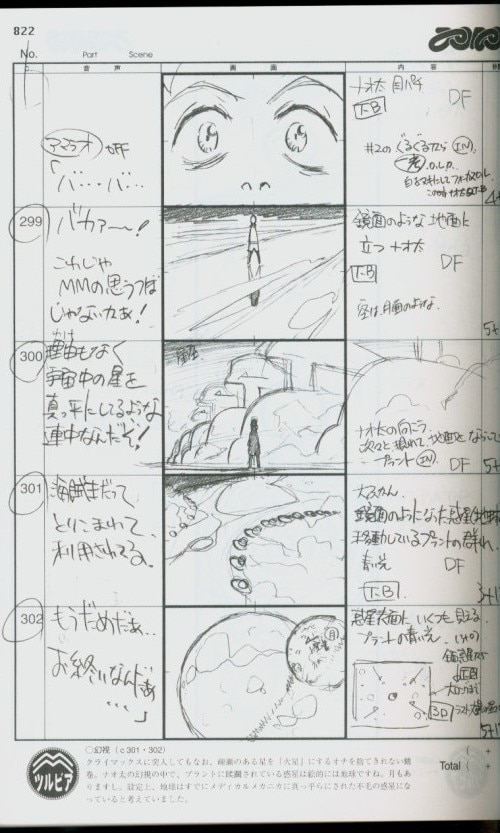 822
No.
Part
Scene
C.
音声
画面
内容
アマラオ OFF
「バ…バ…
ナオ太 目パチ
T.B
DF
#2の ぐるぐるたら IN
299
バカァ〜!
これじゃ
MMの思うつぼ
じゃないかぁ!
鏡面のような地面に
立つナオ太
T.B
DF
空は、月面のような。
300
理由もなく
宇宙中の星を
真っ平にしてるような
連中なんだぞ!
ナオ太の向こう
次々と現れて地面をならして
プラント IN
DF
301
海賊王だって
とりこまれて、
利用されてる。
大フカン。
鏡面のようになった惑星地表
移動しているプラントの群れ
青い光
DF
T.B
302
もうだめだぁ…
お終いなんだぁ
…」
月
惑星表面に いくつも見える
プラントの青い光。
T.B
3D
Total
ツルピア
〇幻視(c301・302)
クライマックスに突入してもなお、綺麗のある星を「火星」にするオチを捨てきれない鶴
巻。ナオ太の幻視の中で、プラントに蹂躙されている惑星は絵的には地球ですね。月もあ
りますし。設定上、地球はすでにメディカルメカニカに真っ平らにされた不毛の惑星にな
っていると考えていました。